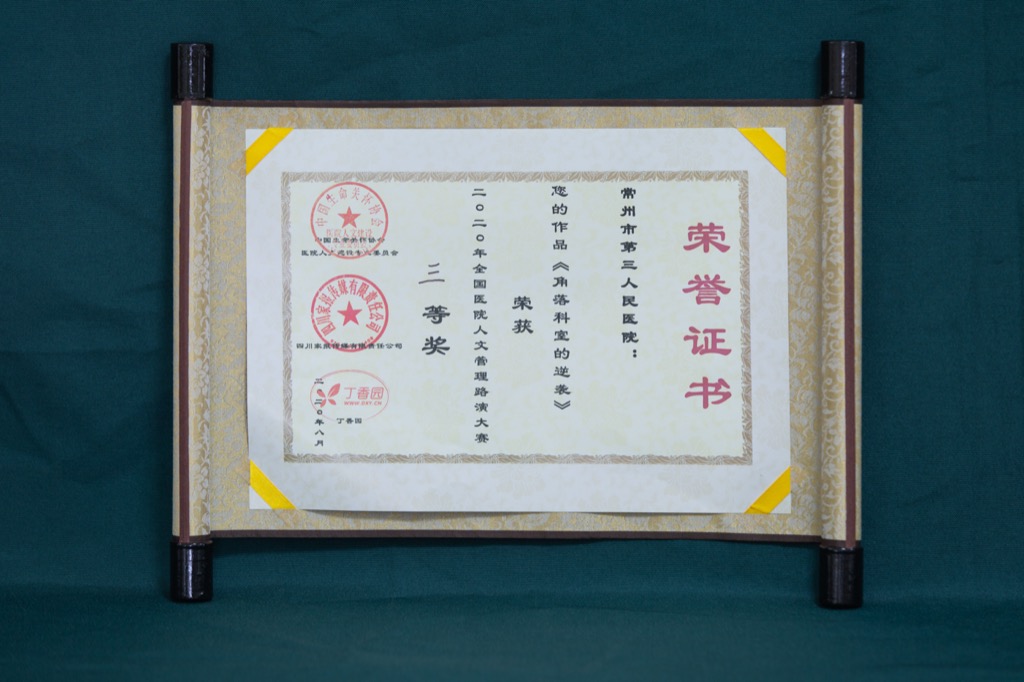 荣誉证书
常州市第三人民医院：
您的作品《角落科室的逆袭》
荣获
二〇二〇年全国医院人文管理路演大赛
三等奖
中国生命关怀协会
医院人文建设
中国生命关怀协会
医院人文建设专业委员会
四川家歴传媒有限责任公司
丁香园
WWW.DXY.CN
丁香园
二〇二〇年八月